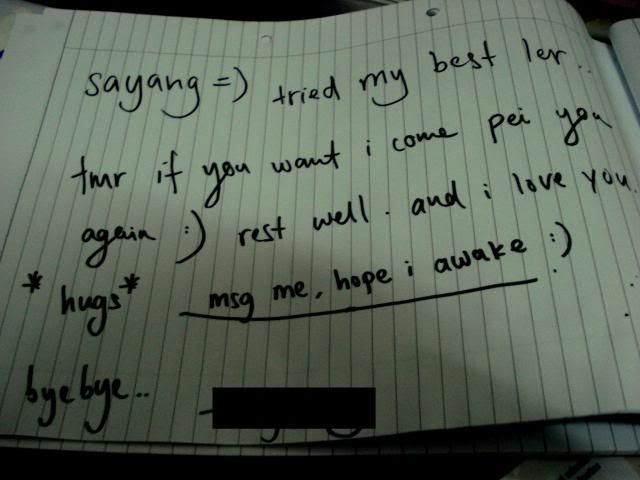 sayang =) tried my best ler..
tmr if you want i come pei you
again :) rest well. and i love you.
*hugs* msg me, hope i awake :)
byebye..